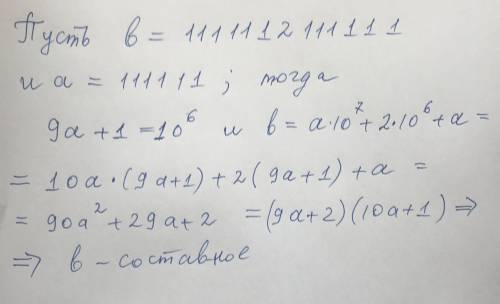 Пусть b = 1111112111111
и a = 111111 ; тогда
9a + 1 = 10⁶ и b = a·10⁷ + 2·10⁶ + a =
= 10a·(9a+1) + 2(9a+1) + a =
= 90a² + 29a + 2 = (9a+2)(10a+1) ⇒
⇒ b – составное